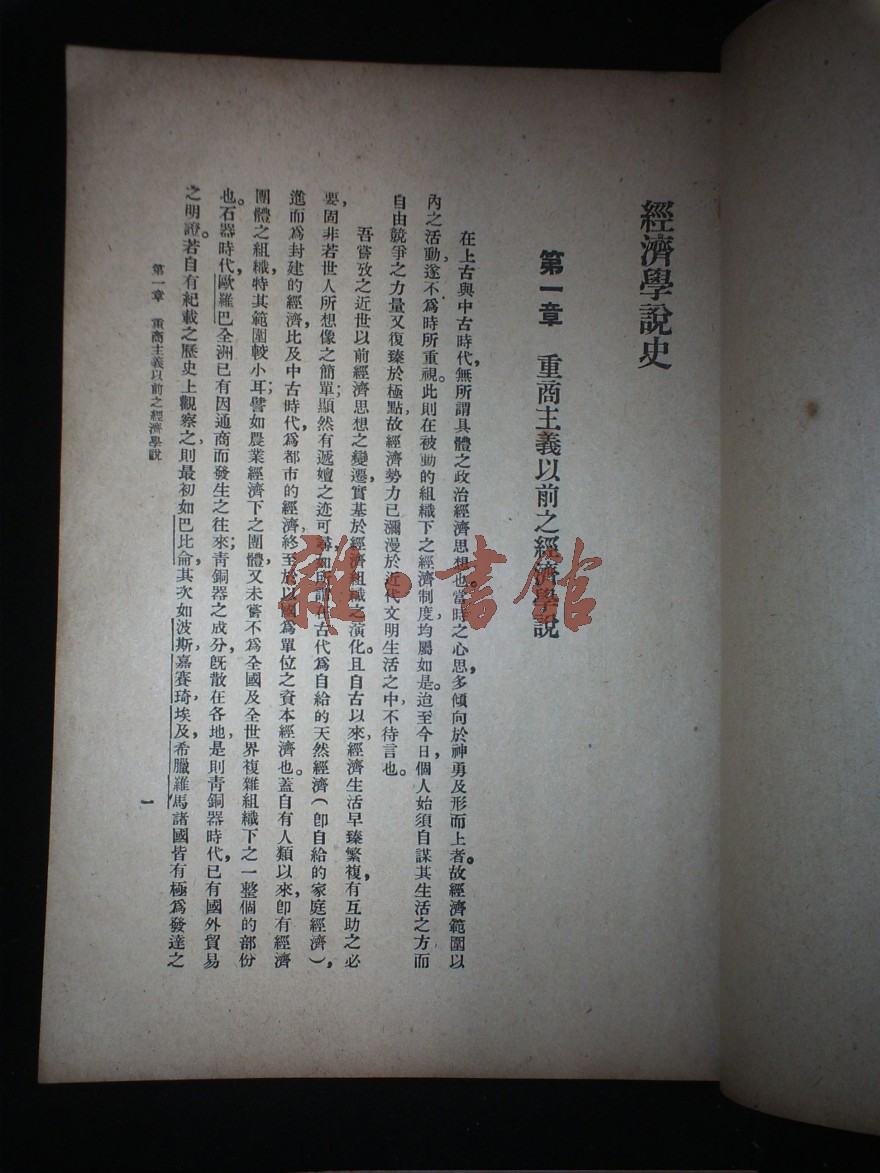 經濟學說史
第一章　重商主義以前之經濟學說
在上古與中古時代，無所謂具體之政治經濟思想也。當時之心思，多傾向於神勇及形而上者。故經濟範圍以
內之活動，遂不爲時所重視。此則在被動的組織下之經濟制度，均屬如是。迨至今日，個人始須自謀其生活之方，而
自由競爭之力量，又復臻於極點，故經濟勢力已瀰漫於近代文明生活之中，不待言也。
吾嘗攷之近世以前經濟思想之變遷，實基於經濟組織之演化。且自古以來，經濟生活早臻繁複，有互助之必
要，固非若世人所想像之簡單；顯然有遞嬗之迹可尋。如所謂在古代爲自給的天然經濟（卽自給的家庭經濟），
進而爲封建的經濟；比及中古時代，爲都市的經濟；終至於以國爲單位之資本經濟也。蓋自有人類以來，卽有經濟
團體之組織，特其範圍較小耳；譬如農業經濟下之團體，又未嘗不爲全國及全世界複雜組織下之一整個的部份
也。石器時代，歐羅巴全洲已有因通商而發生之往來；靑銅器之成分，旣散在各地，是則靑銅器時代，已有國外貿易
之明證。若自有紀載之歷史上觀察之，則最初如巴比侖，其次如波斯，嘉賽琦，埃及，希臘，羅馬諸國，皆有極爲發達之
第一章　重商主義以前之經濟學說
一
雜·書館